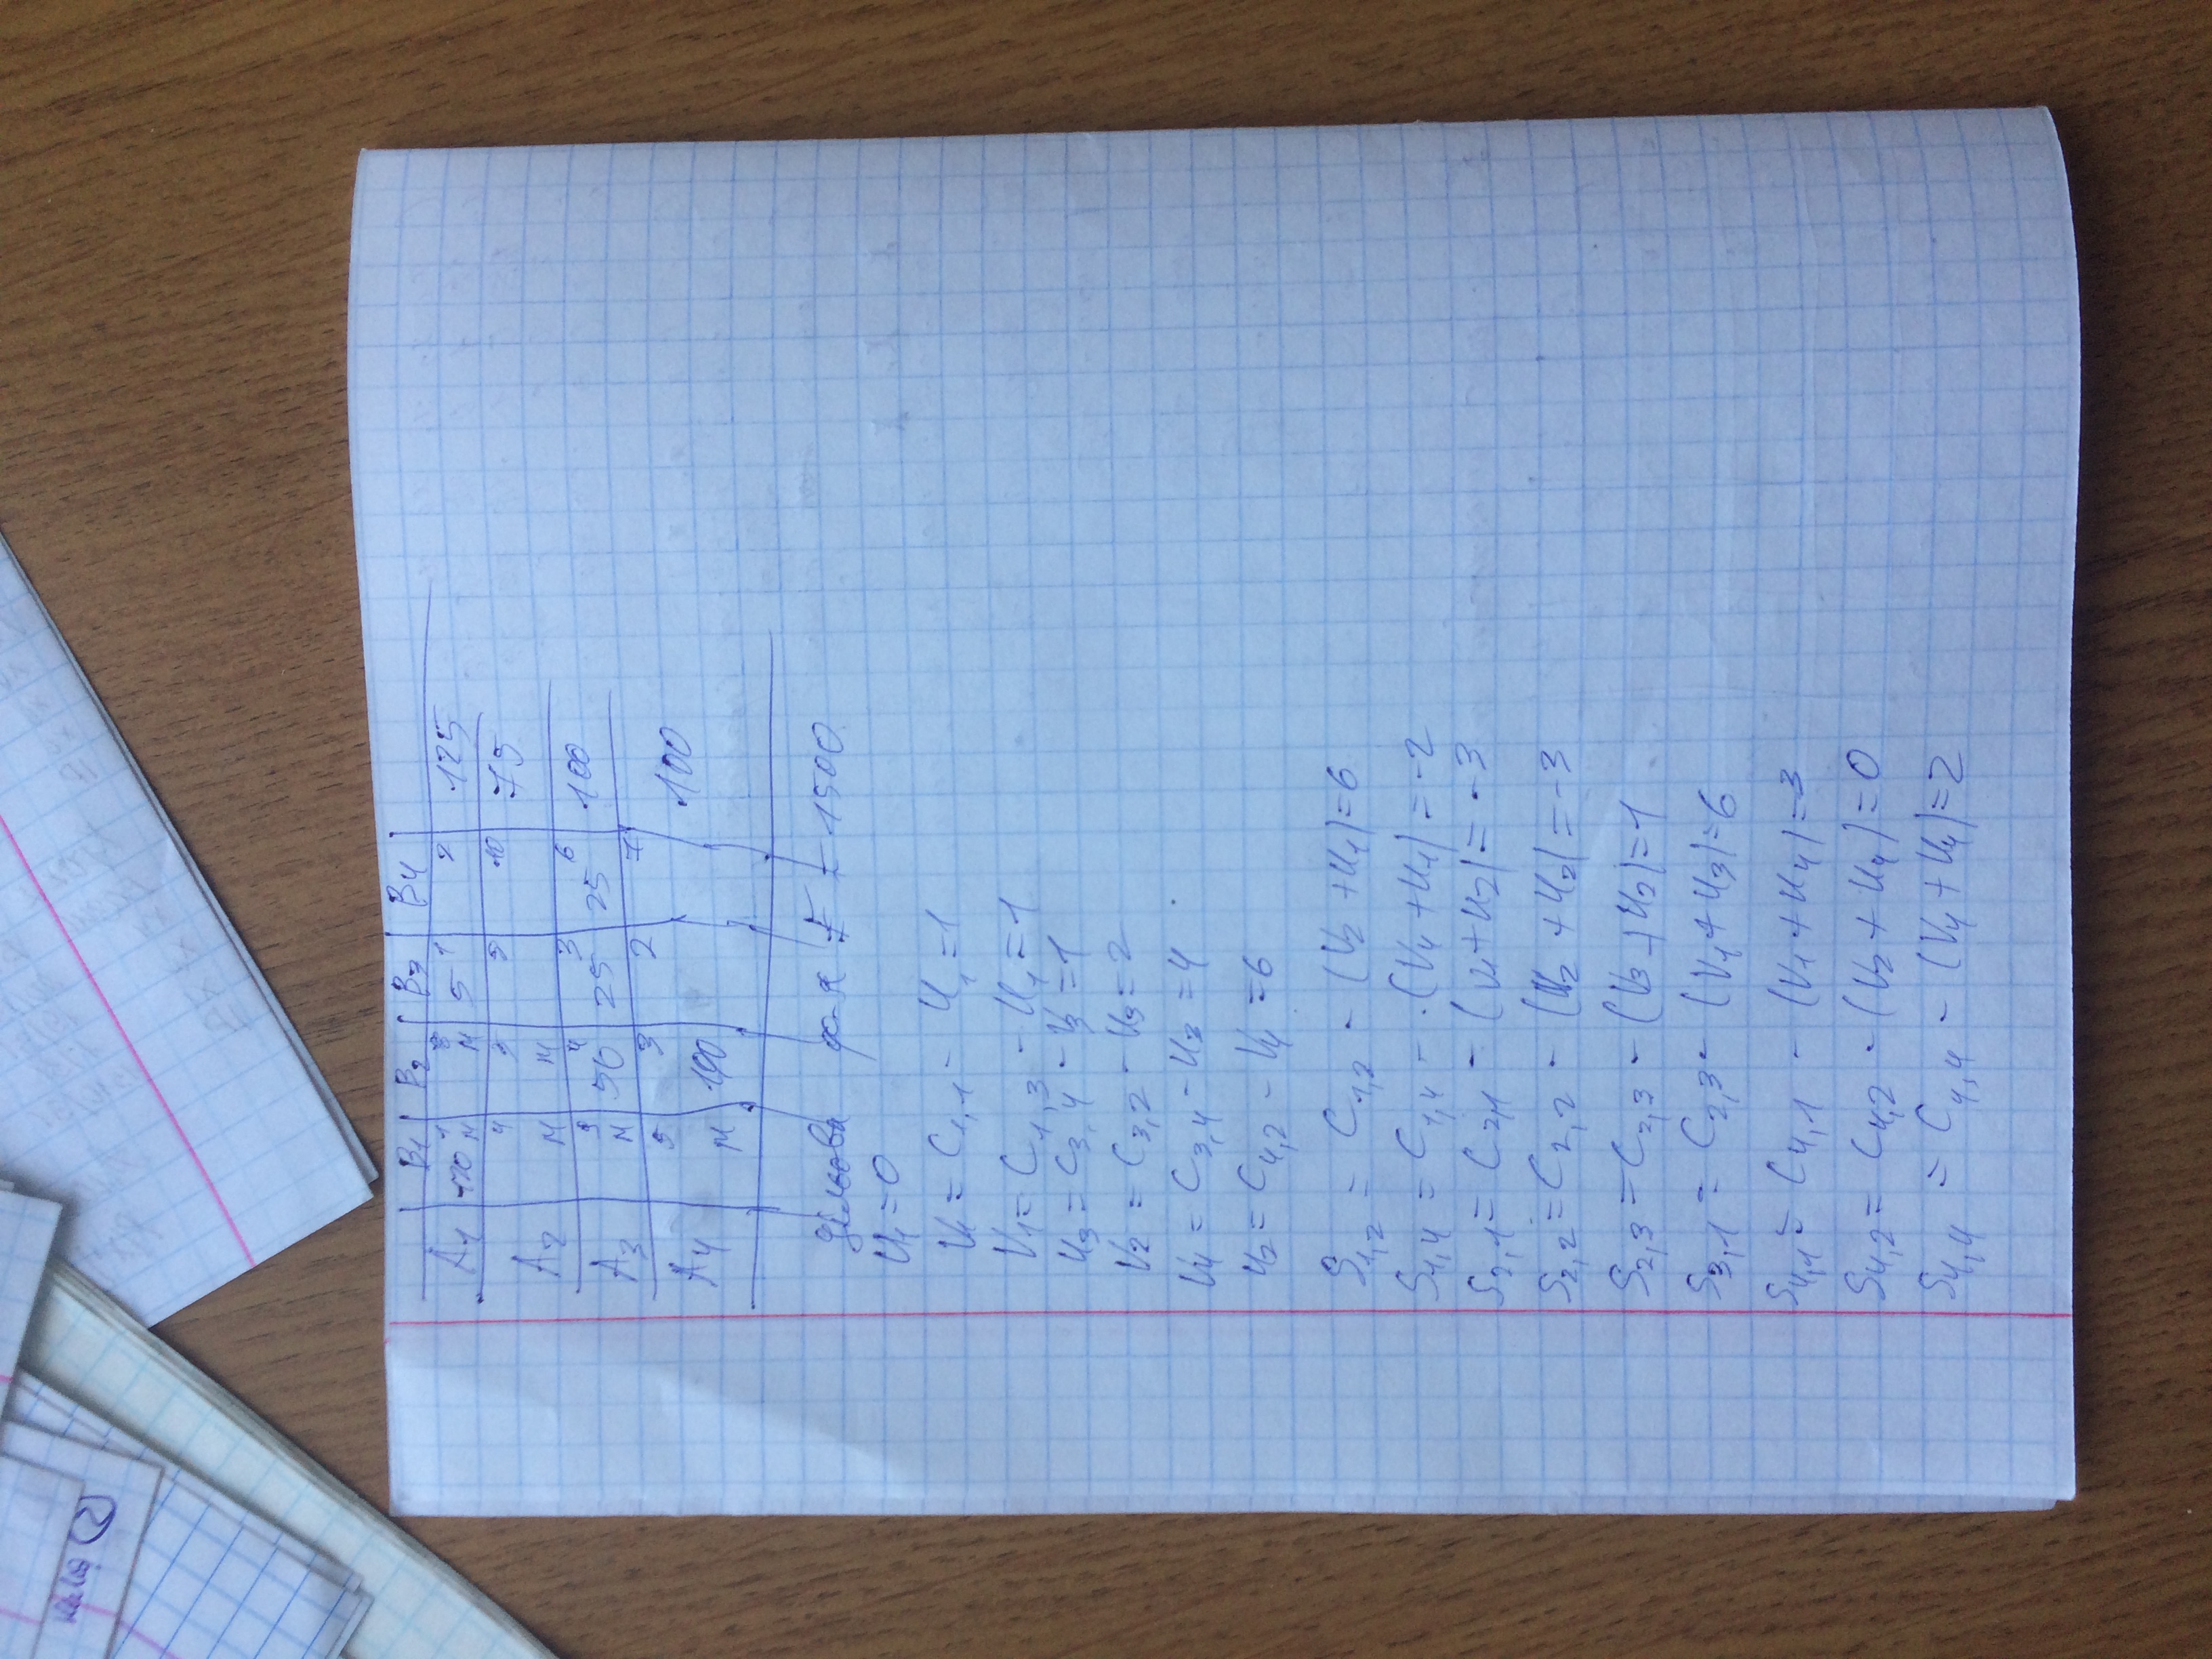 B1 B2 B3 B4
A1 120 1 M 8 M 5 1 2 125
A2 4 M 5 M 9 10 75
A3 9 M 50 4 25 3 25 6 100
A4 5 M 100 3 2 7 100
цільова ф-я F = 1500
U1 = 0
V1 = C1,1 - U1 = 1
V1 = C1,3 - U1 = 1
U3 = C3,4 - V3 = 1
V2 = C3,2 - U3 = 2
V4 = C3,4 - U3 = 4
U2 = C4,2 - V4 = 6
S1,2 = C1,2 - (V2 + U1) = 6
S1,4 = C1,4 - (V4 + U1) = -2
S2,1 = C2,1 - (V1 + U2) = -3
S2,2 = C2,2 - (V2 + U2) = -3
S2,3 = C2,3 - (V3 + U2) = 1
S3,1 = C2,3 - (V1 + U3) = 6
S4,1 = C4,1 - (V1 + U4) = 3
S4,2 = C4,2 - (V2 + U4) = 0
S4,4 = C4,4 - (V4 + U4) = 2